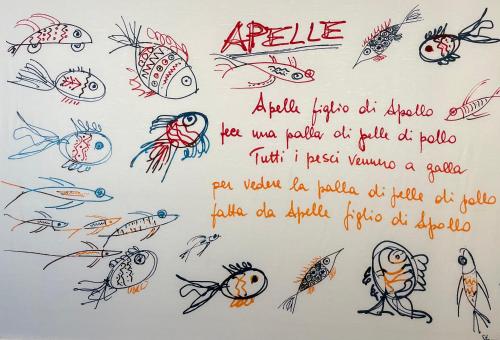 APELLE
Apelle figlio di Apollo
fece una palla di pelle di pollo
Tutti i pesci vennero a galla
per vedere la palla di pelle di pollo
fatta da Apelle figlio di Apollo